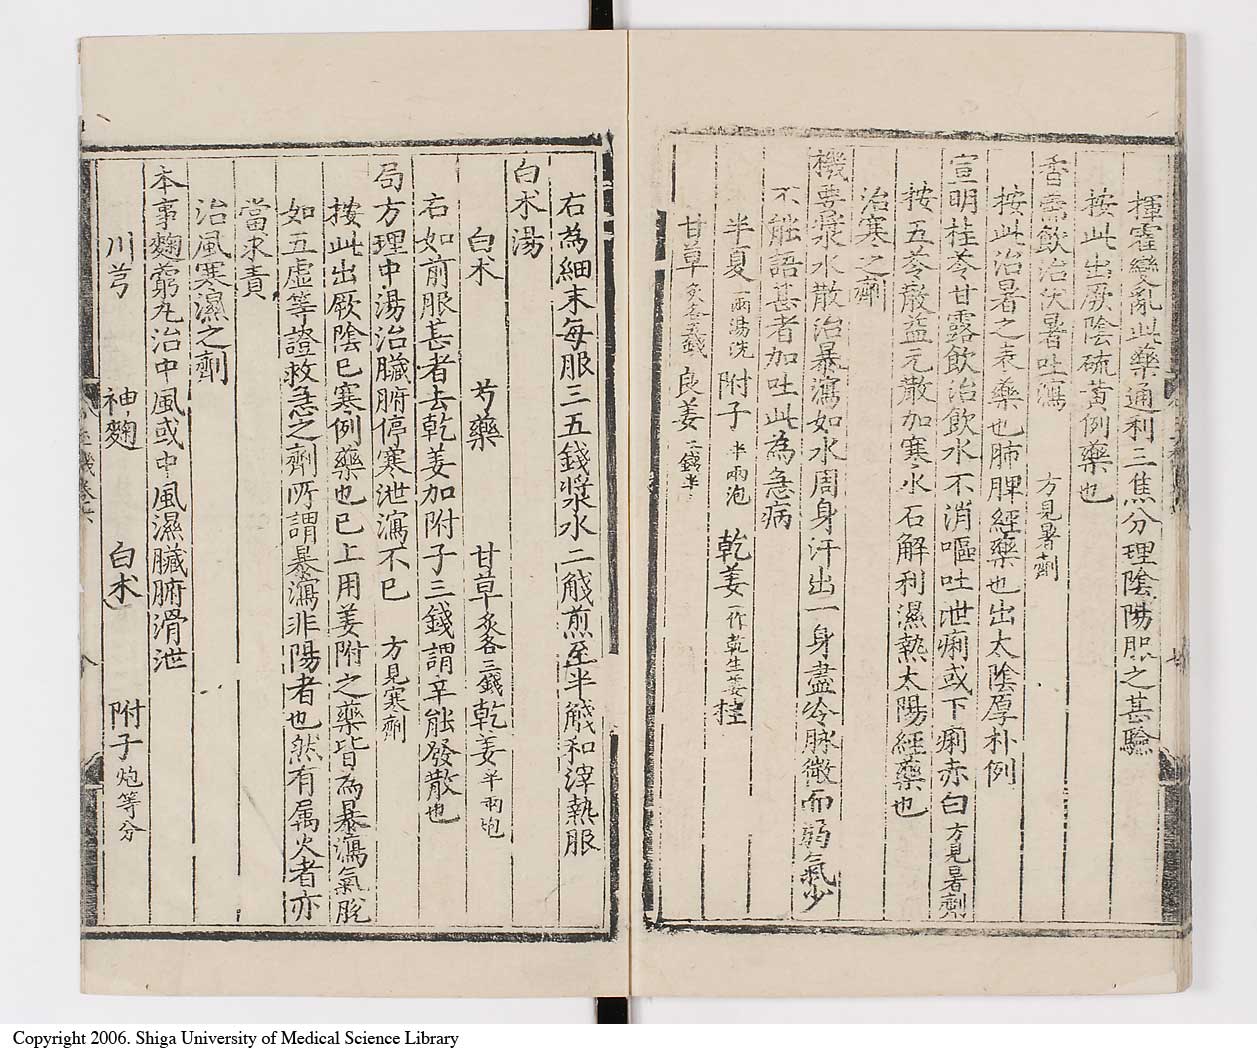 揮霍變亂此藥通利三焦分理陰陽服之甚驗
按此出厥陰硫黃例藥也
香薷飲治伏暑吐瀉 方見暑劑
按此治暑之表藥也肺脾經藥也出太陰厚朴例
宣明桂苓甘露飲治飲水不消嘔吐泄痢或下痢赤白方見暑劑
按五苓散益元散加寒水石解利濕熱太陽經藥也
治寒之劑
機要漿水散治暴瀉如水周身汗出一身盡冷脉微而弱氣少
不能語甚者加吐此為急病
半夏一兩湯洗 附子半兩泡 乾姜一作乾生姜 桂
甘草炙各五錢 良姜二錢半
右為細末每服三五錢漿水二觥煎至半觥和滓熱服
白朮湯
白朮 芍藥 甘草炙各三錢 乾姜半兩炮
右如前服甚者去乾姜加附子三錢謂辛能發散也
局方理中湯治臟腑停寒泄瀉不已 方見寒劑
按此出厥陰已寒例藥也已上用姜附之藥皆為暴瀉氣脫
如五虛等證救急之劑所謂暴瀉非陽者也然有属火者亦
當求責
治風寒濕之劑
本事麴藭丸治中風或中風濕臟腑滑泄
川芎 神麴 白朮 附子炮等分